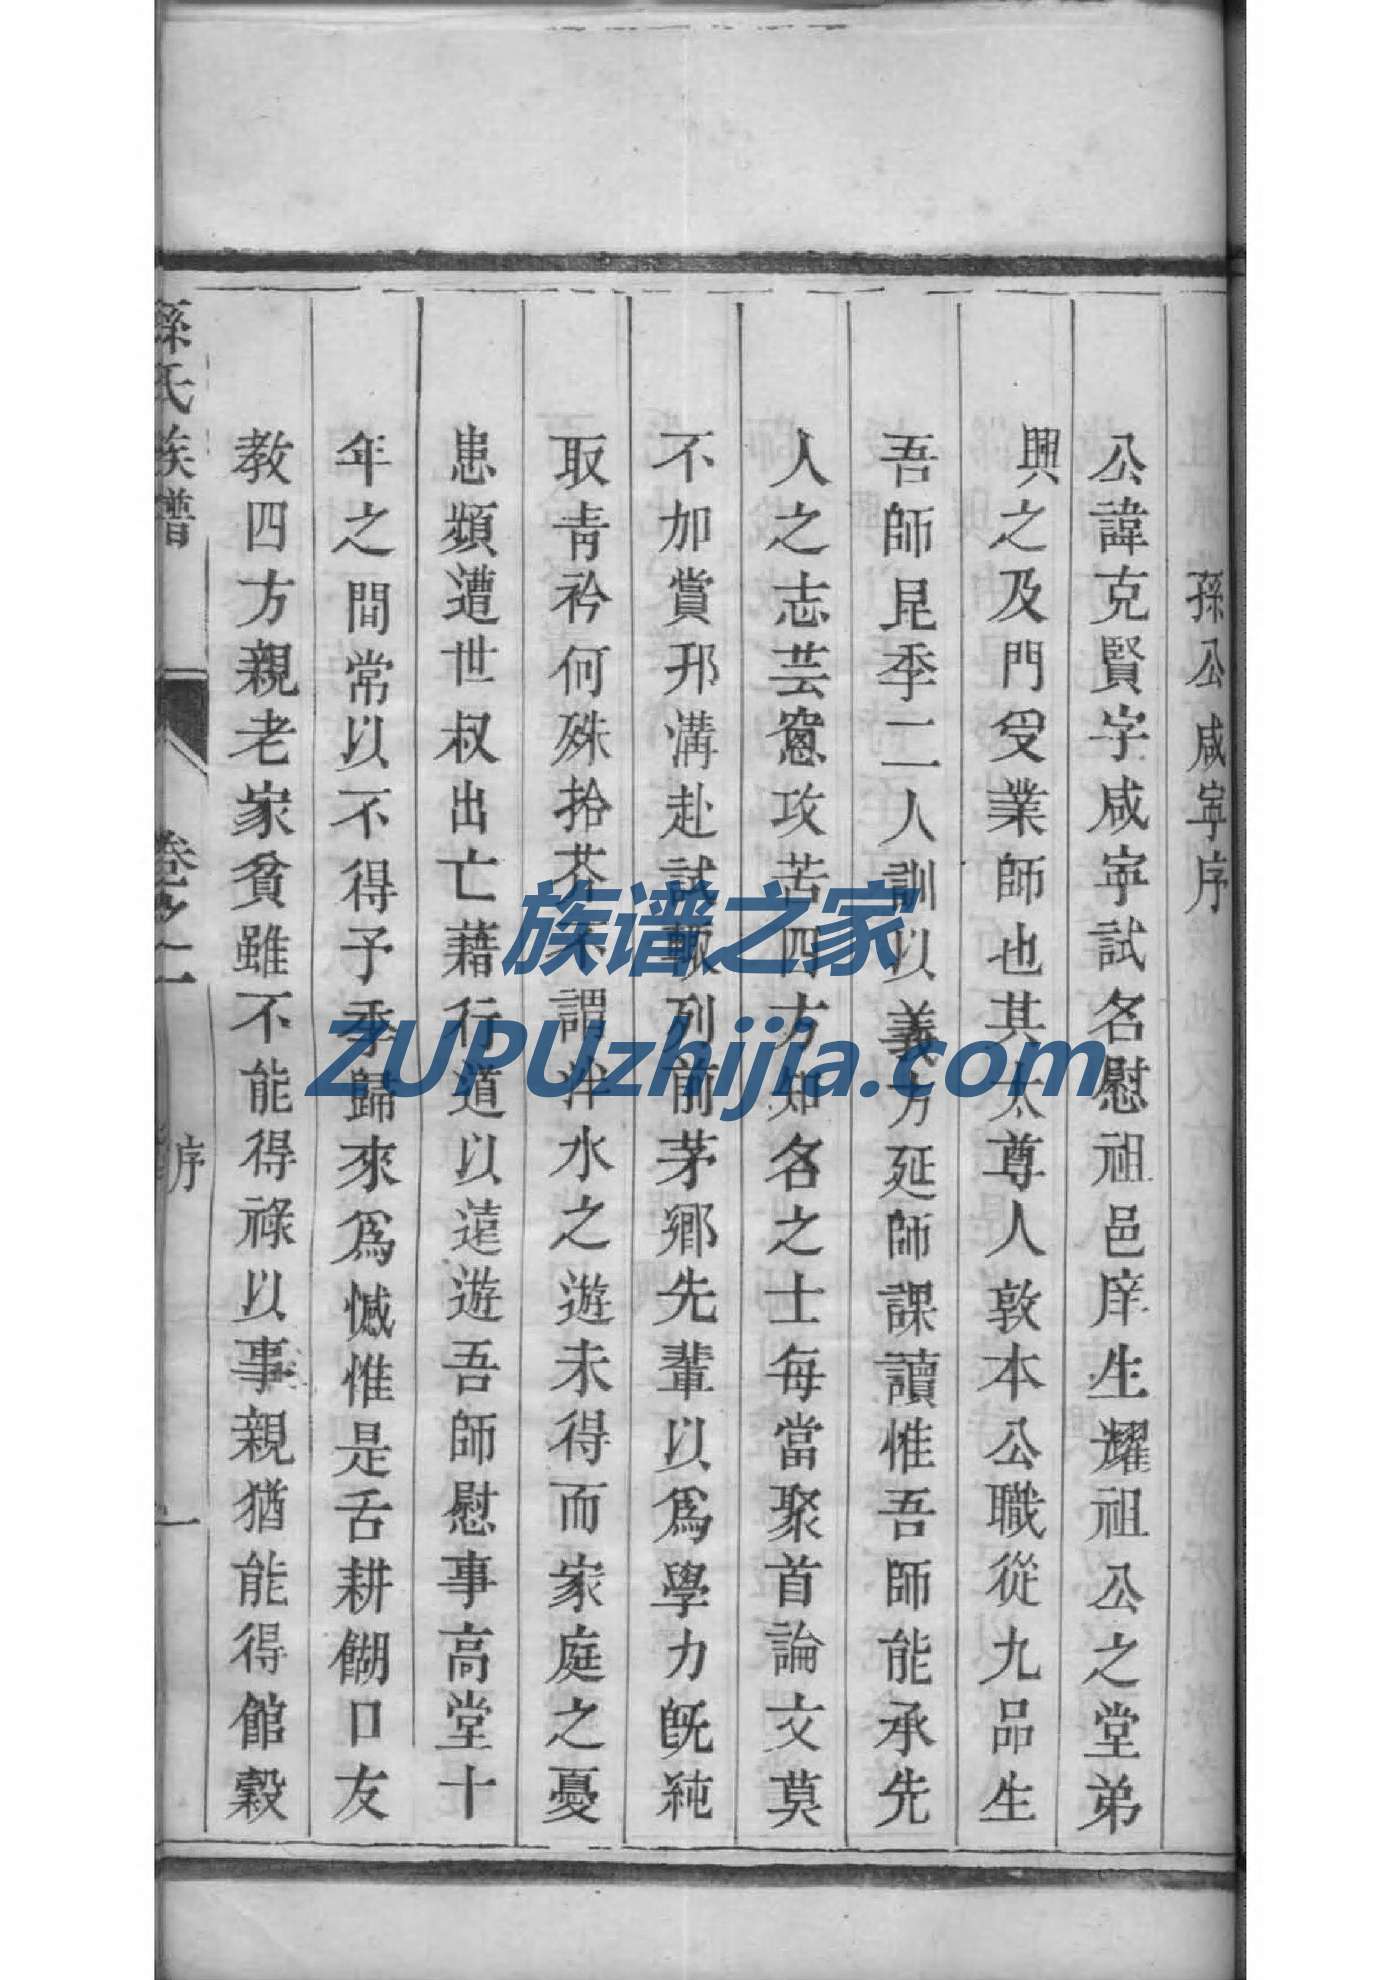 孫公咸寧序
公諱克賢字咸寧試名慰祖邑庠生耀祖公之堂弟
興之及門受業師也其太尊人敦本公職從九品生
吾師昆季二人訓以義方延師課讀惟吾師能承先
人之志芸窗攻苦四方知名之士每當聚首論文莫
不加賞邗溝赴試輙列前茅鄉先輩以為學力既純
取青衿何殊拾芥不謂泮水之遊未得而家庭之憂
患頻遭世叔出亡藉行道以遠遊吾師慰事高堂十
年之間常以不得予季歸來為憾惟是舌耕餬口友
教四方親老家貧雖不能得祿以事親猶能得館穀
孫氏族譜
卷之一
序
一
族谱之家
ZUPUzhijia.com